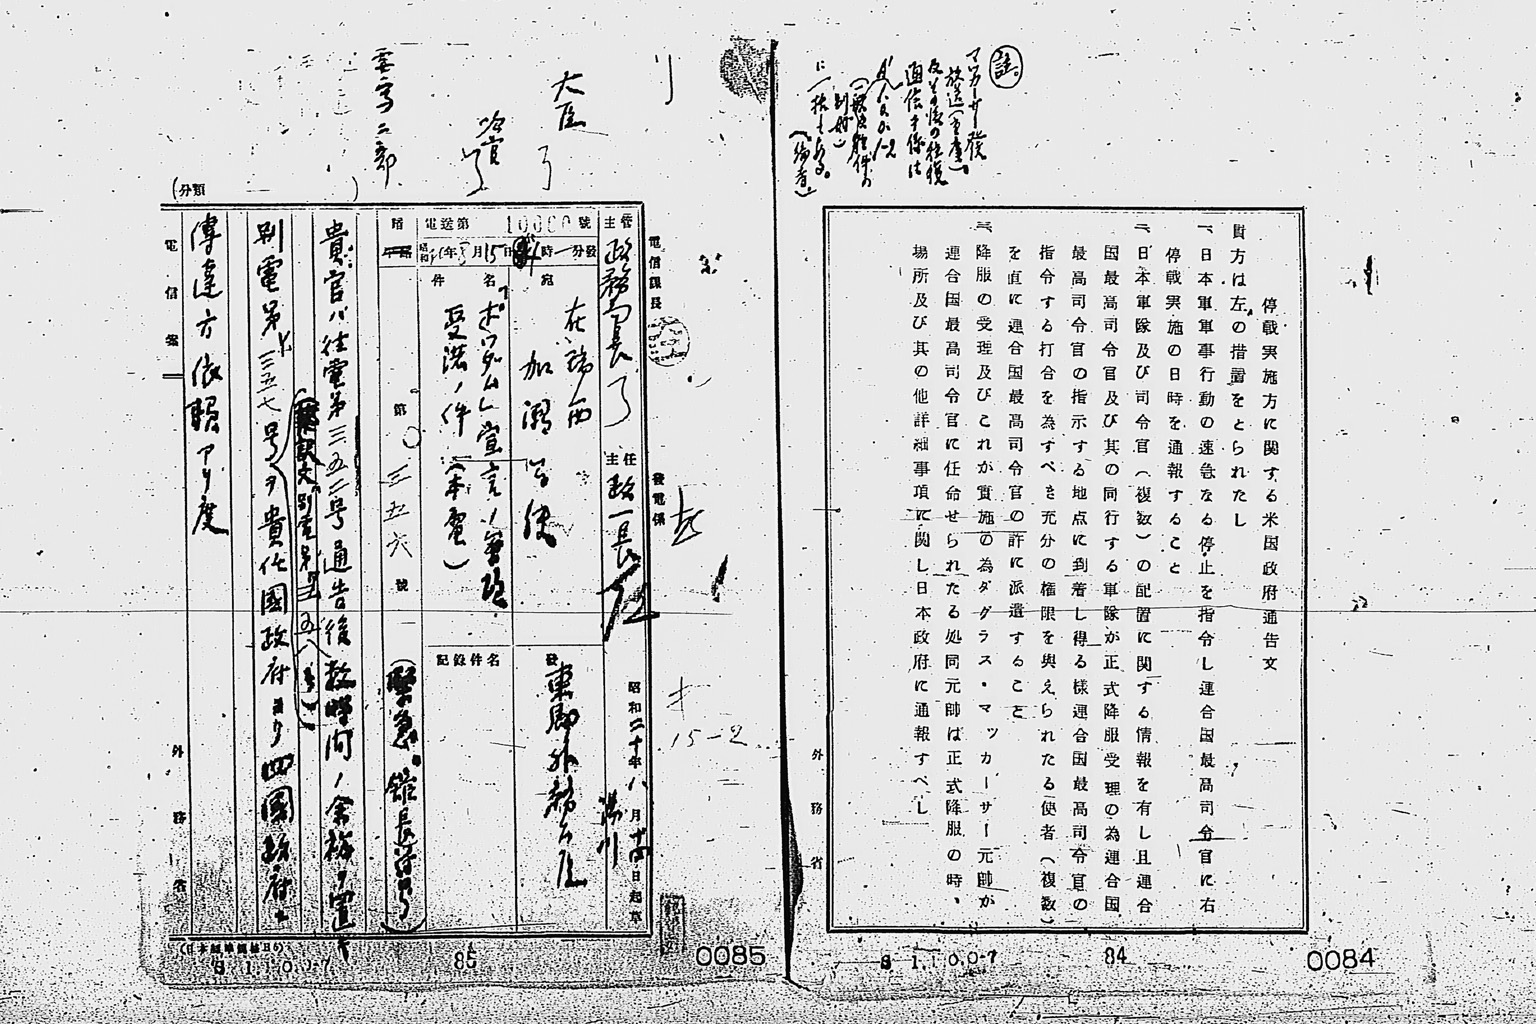 註。
マッカーサー発
放送(重慶)。
及其の後の往復
通信関係は
(一般的経緯の
別冊)
に一括しある。
(編者)。
停戦実施方に関する米国政府通告文
貴方は左の措置をとられたし
一、日本軍軍事行動の速急なる停止を指令し連合国最高司令官に右
停戦実施の日時を通報すること
二、日本軍隊及び司令官(複数)の配置に関する情報を有し且連合
国最高司令官及び其の同行する軍隊が正式降服受理の為連合国
最高司令官の指示する地点に到着し得る様連合国最高司令官の
指令する打合を為すべき充分の権限を与えられたる使者(複数)
を直に連合国最高司令官の許に派遣すること
三、降服の受理及びこれが実施の為ダグラス・マッカーサー元帥が
連合国最高司令官に任命せられたる処同元帥は正式降服の時、
場所及び其の他詳細事項に関し日本政府に通報すべし
外務省
S 1.1.0.0-7
84
0084
大臣
次官
要写二部
(分類 )
電信課長
發電係
主管 政務局長
主任 政一長
昭和二十年八月十四日起草
電送第 號
昭和 年 月15日 時 分發
宛 在瑞西
加瀬公使
發 東郷外務大臣
件名 「ポツダム」宣言ノ
受諾ノ件(本電)
記錄件名
暗
第 三五六 號
(緊急 館長符号)
貴官ハ往電第三五二号通告後数時間ノ余裕ヲ置キ
別電第三五七号
(英訳文別電第三五八号)
ヲ貴任國政府ヨリ四國政府ニ
傳達方依頼アリ度
電信案
外務省
15-2
(日本標準規格B5)
S 1.1.0.0-7
85
0085